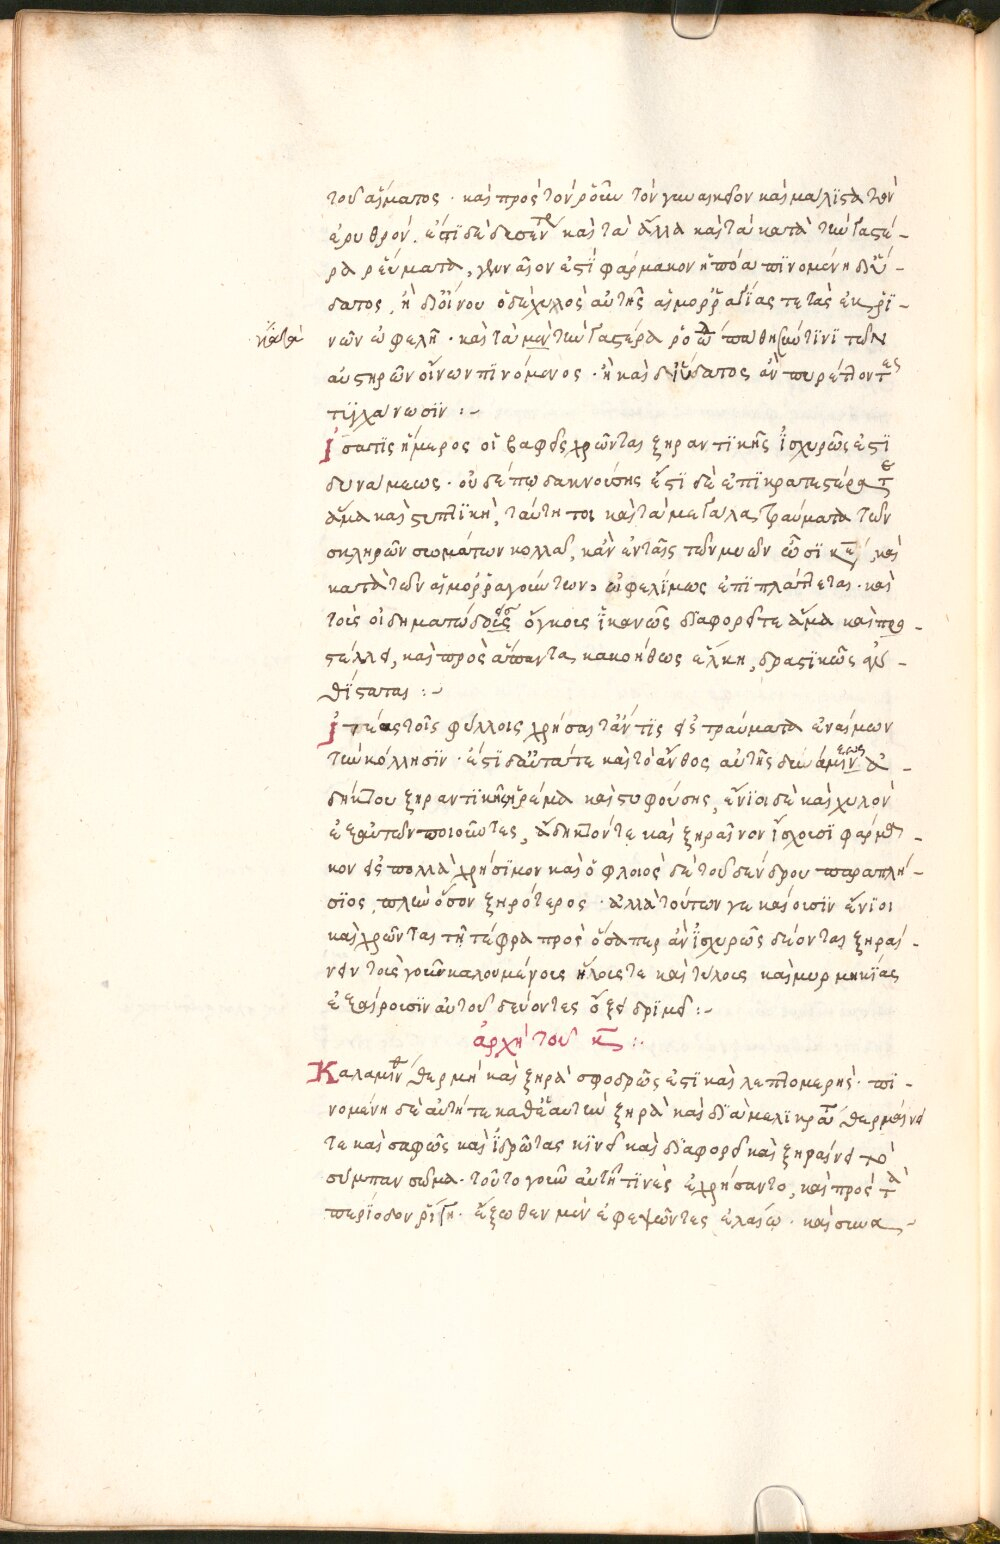 τοῦ αἵματος · καὶ πρὸς τὸν ῥοῦν τὸν γυναικεῖον καὶ μάλιϊστα τὸν
ἐρυθρόν. ἐπϊ δὲ δυσεντε καὶ τὰ ἄλλα καὶ τὰ κατὰ τὴν γαστέ-
ρα ῥεύματα, γενναῖον ἐστϊ φάρμακον ἡ πόα πϊνομένη δι᾽ ὕ-
δατος, ἢ δι᾽ οἴνου ὁ δὲ χυλὸς αὐτῆς αἱμορραγίας τε τὰς ἐκ ῥϊ-
νῶν ὠφελῆ · καὶ τὰ μὲν τὴν γαστέρα ῥο πάθη σύν τϊνϊ τῶν
κατὰ
αὐστηρῶν οἴνων πϊνόμενος · ἢ καὶ δι᾽ ὕδατος ἂν πυρέττοντες
τϋγχάνωσϊν :-
Ἰσατϊς ἥμερος οἱ βαφεῖς χρῶνται ξηραντϊκῆς ἰσχυρῶς ἐστϊ
δυνάμεως · οὐδέπω δακνούσης ἔστϊ δὲ ἐπϊκρατεστέρα τε
ἅμα καὶ στυπτϊκὴ, ταύτη τοι καὶ τὰ μεγάλα τραύματα τῶν
σκληρῶν σωμάτων κολλᾶ, κἂν ἐν ταῖς τῶν μυῶν ὦσϊ κε, καὶ
κατὰ τῶν αἱμορραγούντων, ὠφελίμως ἐπϊπλάττεται · καὶ
τοῖς οἰδηματώδεσι ὄγκοις ἱκανῶς δϊαφορεῖ τε ἅμα καὶ προ-
στέλλει, καὶ πρὸς ἅπαντα κακοήθως ἕλκη, δραστϊκῶς ἀν-
θϊσταται :-
Ἰτέας τοῖς φύλλοις χρήσαιτ᾽ ἄν τϊς εἰς τραύματα ἐναίμων
τὴν κόλλησϊν · ἔστϊ δ᾽ αὐτά τε καὶ τὸ ἄνθος αὐτῆς δυνάμεως ἀ-
δήκτου ξηραντϊκῆς ἠρέμα καὶ στυφούσης, ἔνϊοι δὲ καὶ χυλὸν
ἐξ αὐτῶν ποιοῦντες, ἄδηκτόν τε καὶ ξηραῖνον ἴσχουσϊ φάρμα-
κον εἰς πολλὰ χρήσϊμον καὶ ὁ φλοιὸς δὲ τοῦ δένδρου παραπλή-
σϊος, πλὴν ὅσον ξηρότερος · ἀλλὰ τούτων γε καίουσϊν ἔνϊοι
καὶ χρῶνται τῇ τέφρα πρὸς ὅσα περ ἂν ἰσχυρῶς δέονται ξηραί-
νειν τοὺς γοῦν καλουμένους ἥλους τε καὶ τύλους καὶ μυρμηκϊας
ἐξαίρουσϊν αὐτοῦ δεύοντες ὄξει δρϊμεῖ :-
ἀρχὴ τοῦ κ :-
Καλαμίνθ θερμὴ καὶ ξηρὰ σφοδρῶς ἐστϊ καὶ λεπτομερής · πϊ-
νομένη δὲ αὐτή τε καθ᾽ ἑαυτὴν ξηρὰ καὶ δϊὰ μελϊκράτ θερμαίνει
τε καὶ σαφῶς καὶ ϊδρῶτας κϊνεῖ καὶ δϊαφορεῖ καὶ ξηραίνει τὸ
σύμπαν σῶμα · τοῦτο γοῦν αὐτῆ τϊνὲς ἐχρήσαντο, καὶ πρὸς τὰ
περϊοδον ῥίγη · ἔξωθεν μὲν ἐφεψῶντες ἐλαίῳ · καὶ συνα-